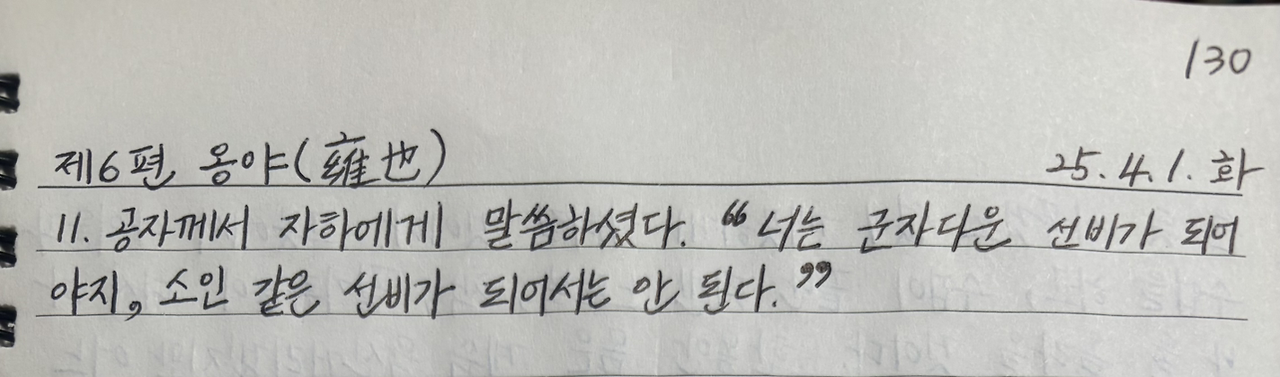 130
제6편 옹야(雍也) 25.4.1. 화
11. 공자께서 자하에게 말씀하셨다. “너는 군자다운 선비가 되어
야지, 소인 같은 선비가 되어서는 안 된다.”